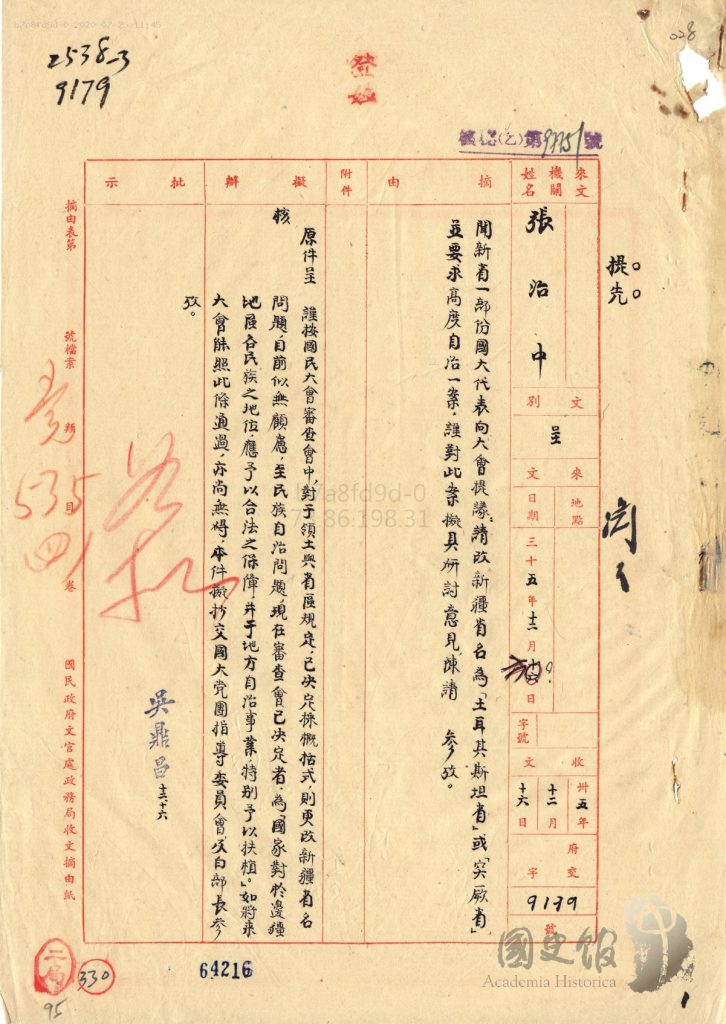 2538-3
9179
028
登
號
提先
來文機關姓名
張治中
文別
呈
來文
地點
日期
三十五年十二月
日
字號
收文
卅五年
十二月
十六日
府交字
9179
號
摘由
聞新省一部份國大代表向大會提議請改新疆省名為「土耳其斯坦省」或「突厥省」
並要求高度自治一案，謹對此案擬具研討意見，陳請　參攷。
附件
擬辦
原件呈
核
謹按國民大會審查會中，對于領土與省區規定，已決定採概括式，則更改新疆省名
問題，目前似無顧慮，至民族自治問題，現在審查會已決定者，為「國家對於邊疆
地區各民族之地位，應予以合法之保障，并于地方自治事業，特別予以扶植。」如將來
大會能照此條通過，亦尚無礙，本件擬抄交國大党團指導委員會及白部長參
攷。
吳鼎昌
十二十六
批示
摘由表第　號檔案　類　目　卷
535
四
國民政府文官處政務局收文摘由紙
二局
330
95
64216
國史館
Academia Historica
1